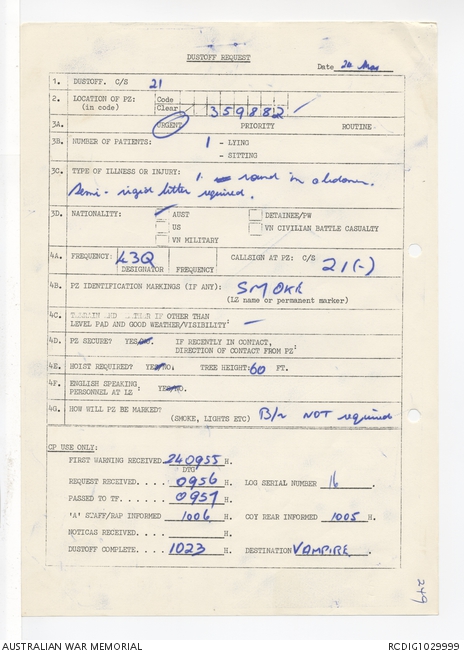 DUSTOFF REQUEST
Date 24 Mar
1. DUSTOFF. C/S 21
2. LOCATION OF PZ: (in code) Code
Clear 359882
3A. URGENT PRIORITY ROUTINE
3B. NUMBER OF PATIENTS: 1 - LYING
- SITTING
3C. TYPE OF ILLNESS OR INJURY: 1 round in abdomen.
Semi-rigid litter required.
3D. NATIONALITY: AUST DETAINEE/PW
US VN CIVILIAN BATTLE CASUALTY
VN MILITARY
4A. FREQUENCY: K3Q CALLSIGN AT PZ: C/S 21(-)
DESIGNATOR FREQUENCY
4B. PZ IDENTIFICATION MARKINGS (IF ANY): SMOKE
(LZ name or permanent marker)
4C. TERRAIN AND WEATHER IF OTHER THAN
LEVEL PAD AND GOOD WEATHER/VISIBILITY: —
4D. PZ SECURE? YES/NO. IF RECENTLY IN CONTACT,
DIRECTION OF CONTACT FROM PZ:
4E. HOIST REQUIRED? YES/NO. TREE HEIGHT: 60 FT.
4F. ENGLISH SPEAKING
PERSONNEL AT LZ: YES/NO.
4G. HOW WILL PZ BE MARKED? B/r NOT required
(SMOKE, LIGHTS ETC)
CP USE ONLY:
FIRST WARNING RECEIVED 240955 H.
DTG
REQUEST RECEIVED..... 0956 H. LOG SERIAL NUMBER 16
PASSED TO TF......... 0957 H.
'A' STAFF/RAP INFORMED 1006 H. COY REAR INFORMED 1005 H.
NOTICAS RECEIVED..... H.
DUSTOFF COMPLETE..... 1023 H. DESTINATION VAMPIRE.
249
AUSTRALIAN WAR MEMORIAL
RCDIG1029999